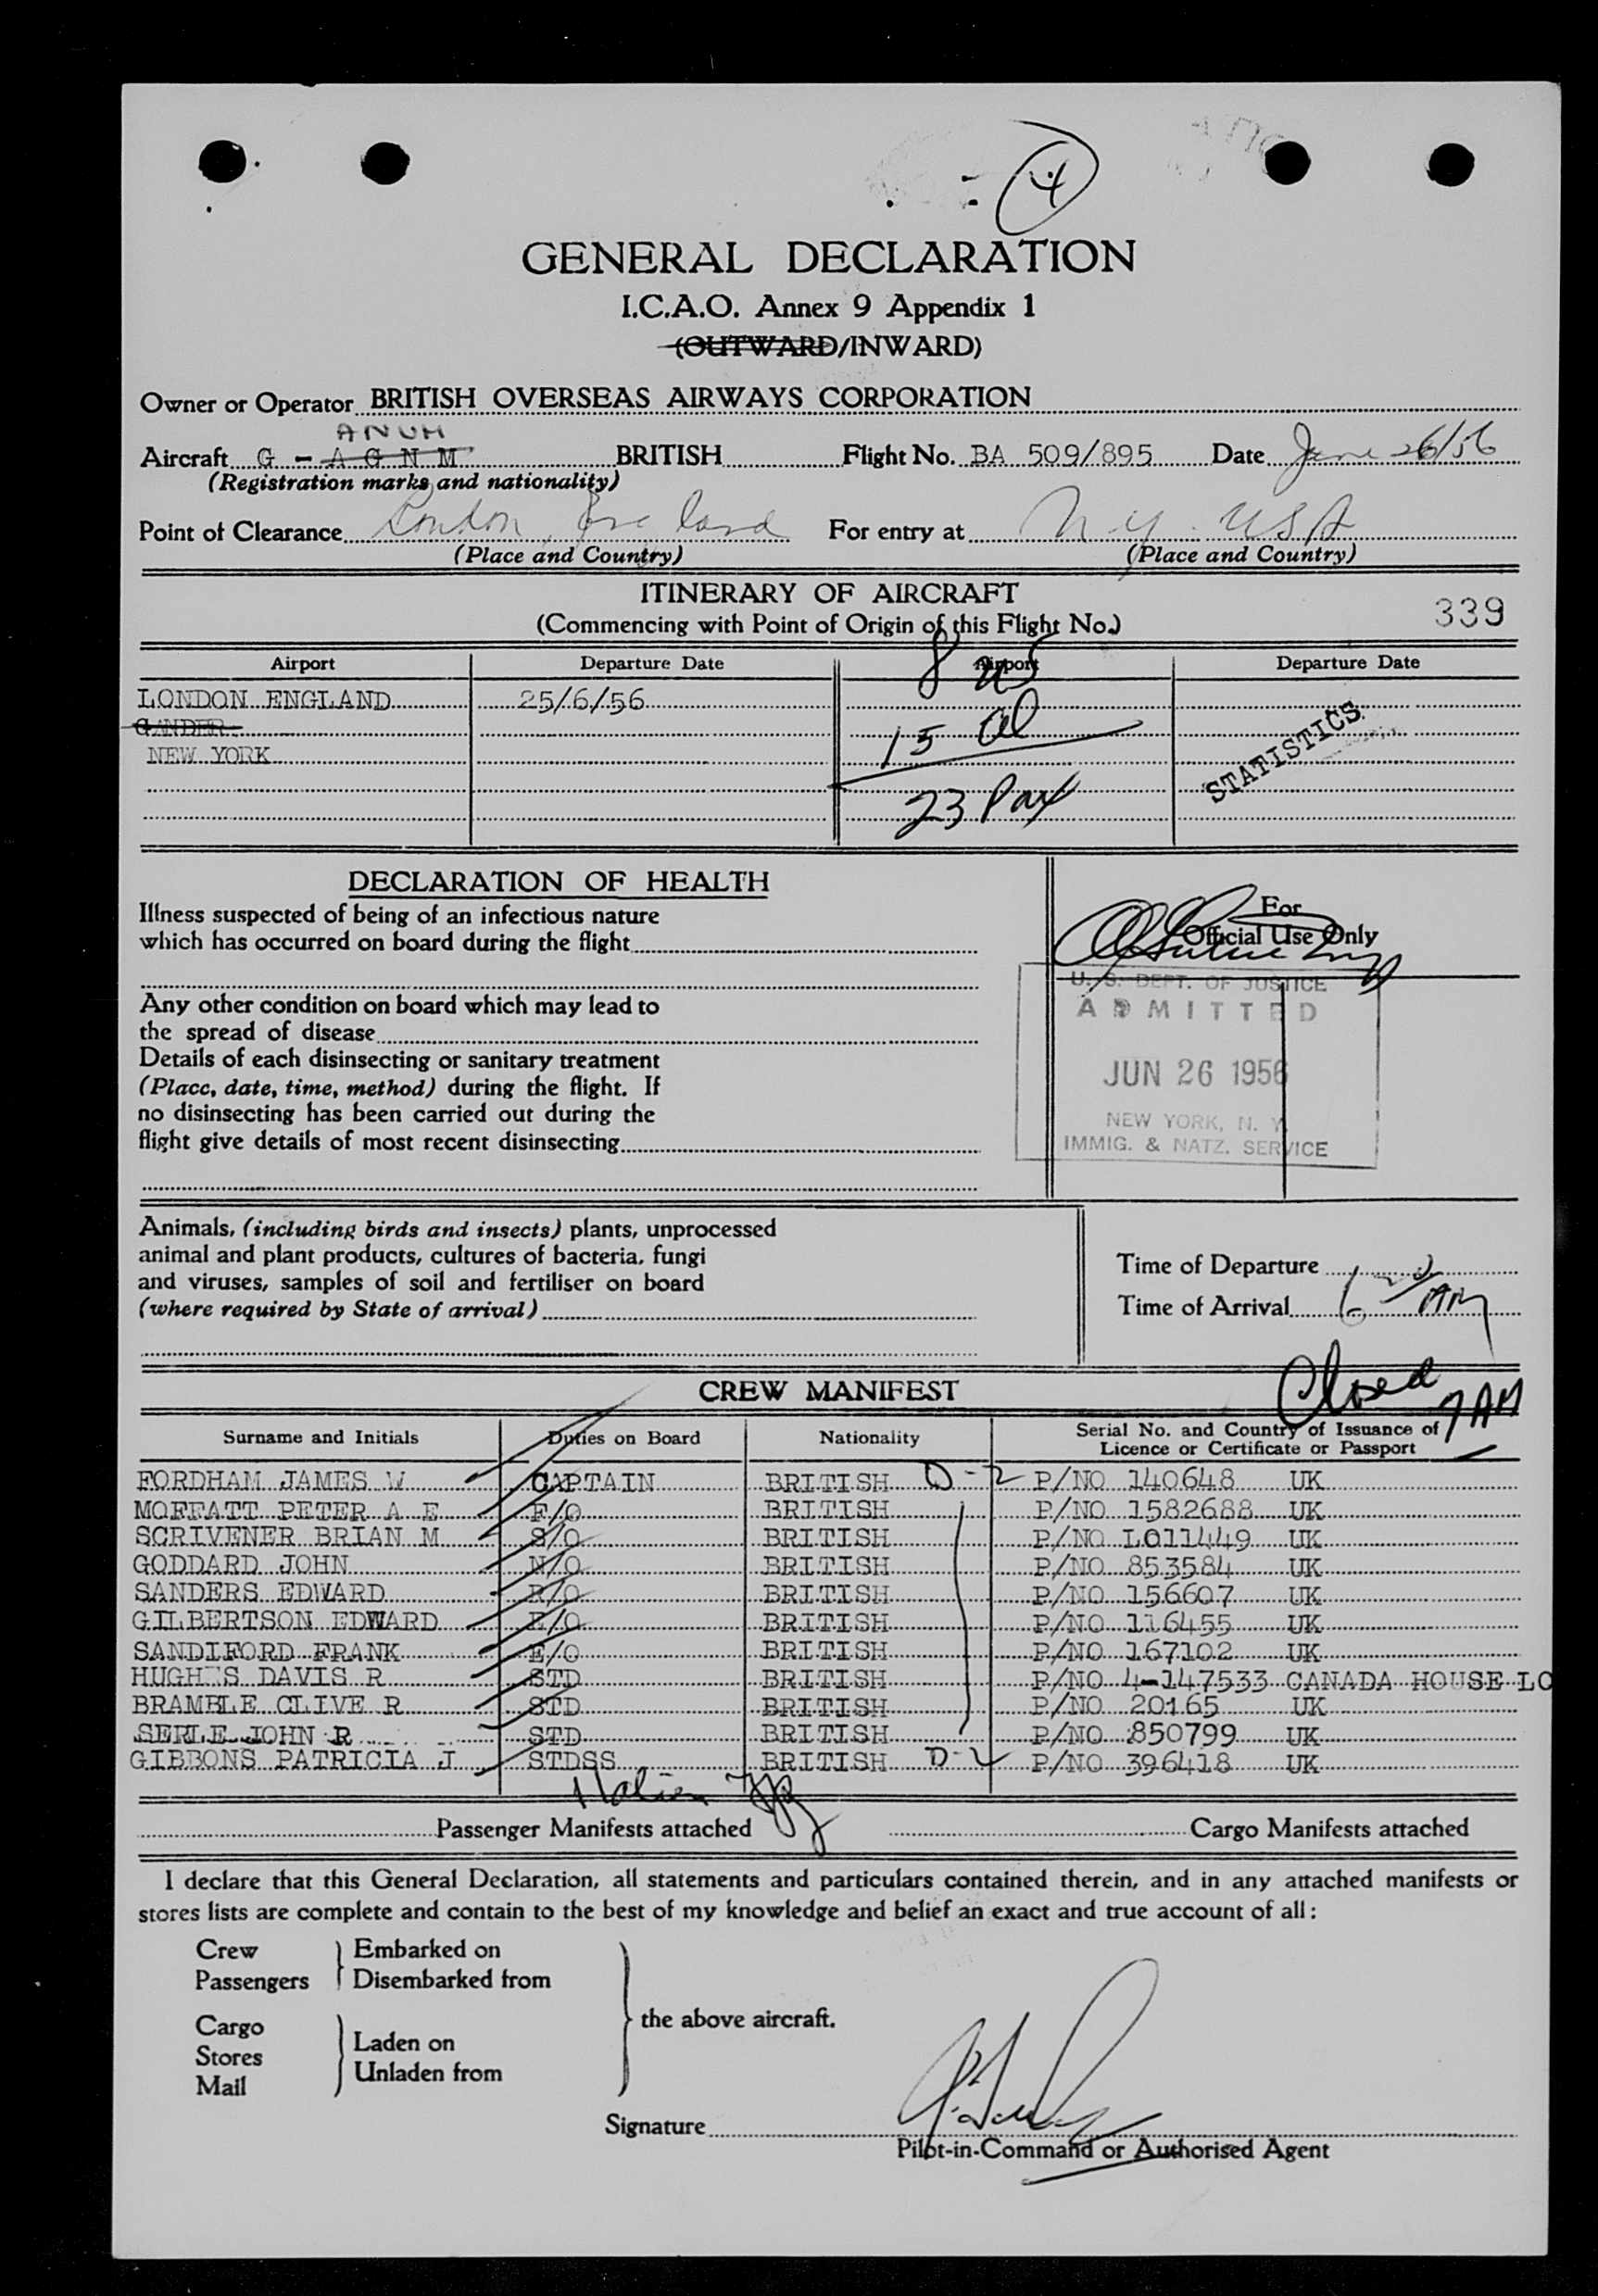 4
GENERAL DECLARATION
I.C.A.O. Annex 9 Appendix 1
(OUTWARD/INWARD)
Owner or Operator BRITISH OVERSEAS AIRWAYS CORPORATION
ANUM
Aircraft G - A G N M BRITISH Flight No. BA 509/895 Date June 26/56
(Registration marks and nationality)
Point of Clearance London, England For entry at N.Y. USA
(Place and Country) (Place and Country)
ITINERARY OF AIRCRAFT
(Commencing with Point of Origin of this Flight No.) 339
Airport Departure Date Airport Departure Date
8 us
LONDON ENGLAND 25/6/56
GANDER
15 al
NEW YORK
STATISTICS
23 Pax
DECLARATION OF HEALTH
Illness suspected of being of an infectious nature
which has occurred on board during the flight
For
Official Use Only
Any other condition on board which may lead to
the spread of disease
Details of each disinsecting or sanitary treatment
(Place, date, time, method) during the flight. If
no disinsecting has been carried out during the
flight give details of most recent disinsecting
U. S. DEPT. OF JUSTICE
ADMITTED
JUN 26 1956
NEW YORK, N. Y.
IMMIG. & NATZ. SERVICE
Animals, (including birds and insects) plants, unprocessed
animal and plant products, cultures of bacteria, fungi
and viruses, samples of soil and fertiliser on board
(where required by State of arrival)
Time of Departure
Time of Arrival 6 AM
Closed 7 AM
CREW MANIFEST
Surname and Initials Duties on Board Nationality Serial No. and Country of Issuance of
Licence or Certificate or Passport
FORDHAM JAMES W CAPTAIN BRITISH D-2 P/NO 140648 UK
MOFFATT PETER A E F/O BRITISH P/NO 1582688 UK
SCRIVENER BRIAN M S/O BRITISH P/NO L011449 UK
GODDARD JOHN N/O BRITISH P/NO 853584 UK
SANDERS EDWARD R/O BRITISH P/NO 156607 UK
GILBERTSON EDWARD E/O BRITISH P/NO 116455 UK
SANDIFORD FRANK E/O BRITISH P/NO 167102 UK
HUGHES DAVIS R STD BRITISH P/NO 4-147533 CANADA HOUSE LO
BRAMBLE CLIVE R STD BRITISH P/NO 20165 UK
SERLE JOHN R STD BRITISH P/NO 850799 UK
GIBBONS PATRICIA J STDSS BRITISH D-2 P/NO 396418 UK
Passenger Manifests attached Cargo Manifests attached
I declare that this General Declaration, all statements and particulars contained therein, and in any attached manifests or
stores lists are complete and contain to the best of my knowledge and belief an exact and true account of all :
Crew Embarked on
Passengers Disembarked from
the above aircraft.
Cargo
Stores Laden on
Mail Unladen from
Signature
Pilot-in-Command or Authorised Agent